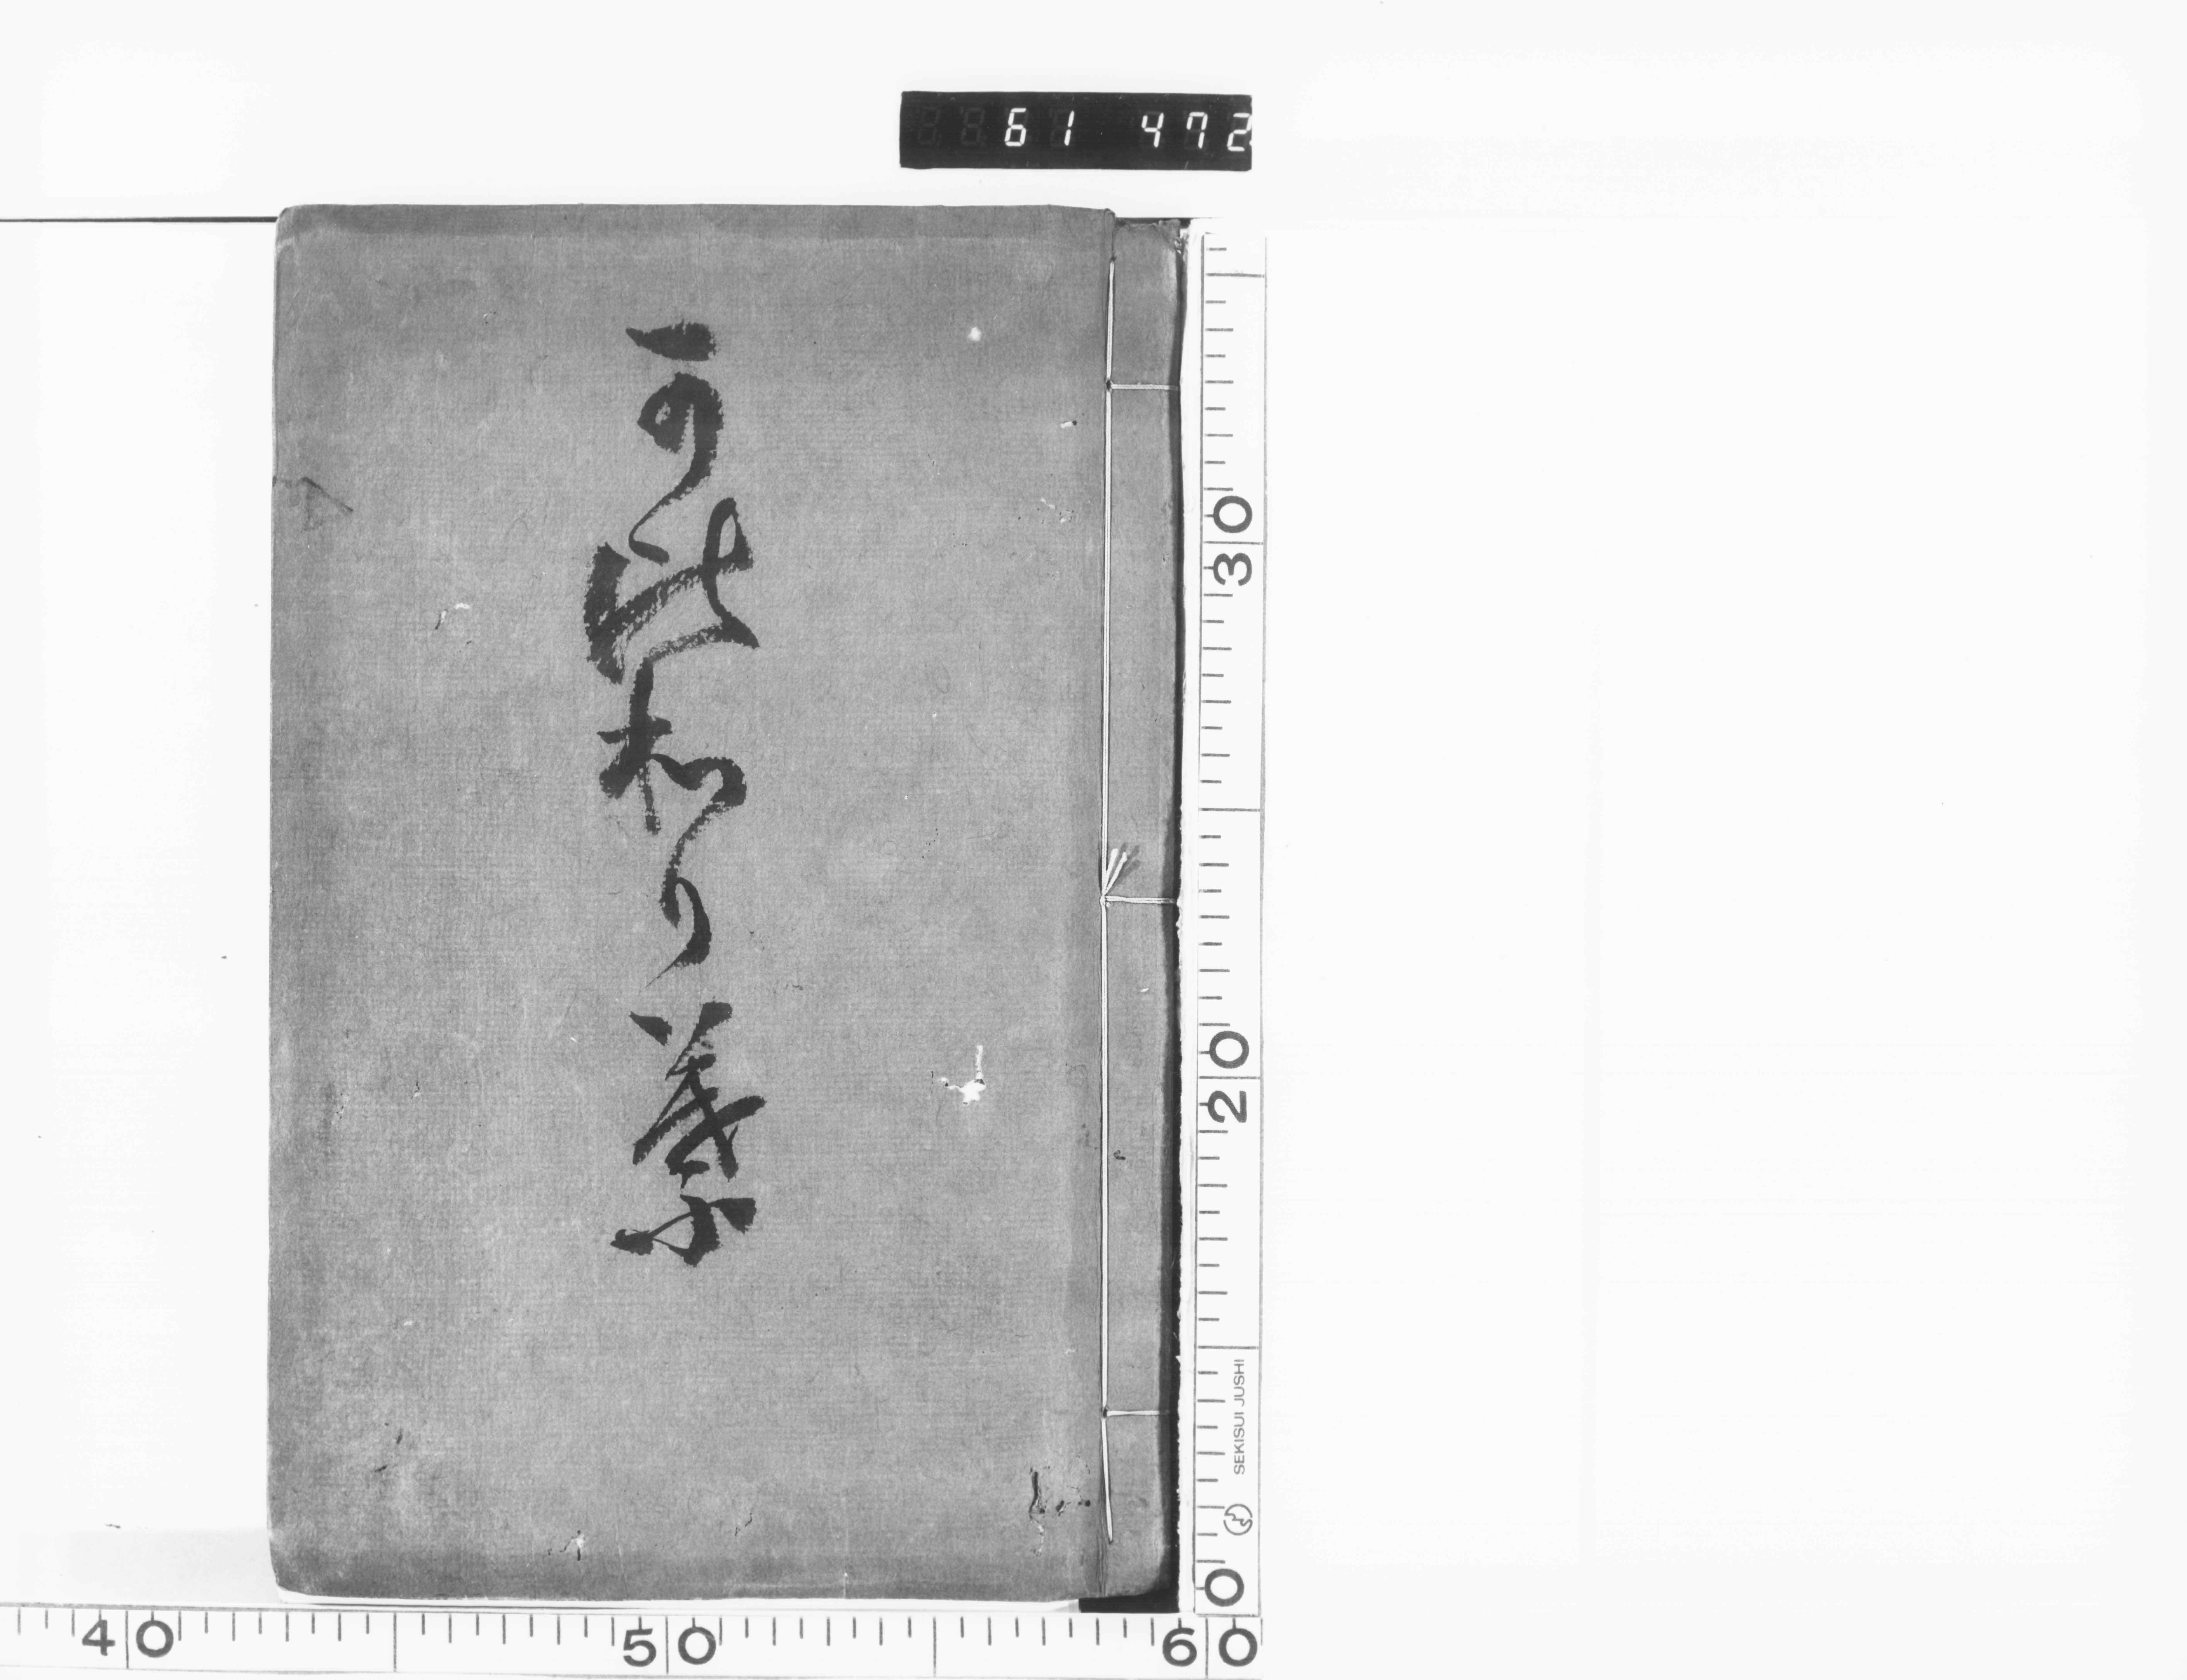 61 472
可比和り菜
30
20
SEKISUI JUSHI
0
40 50 60